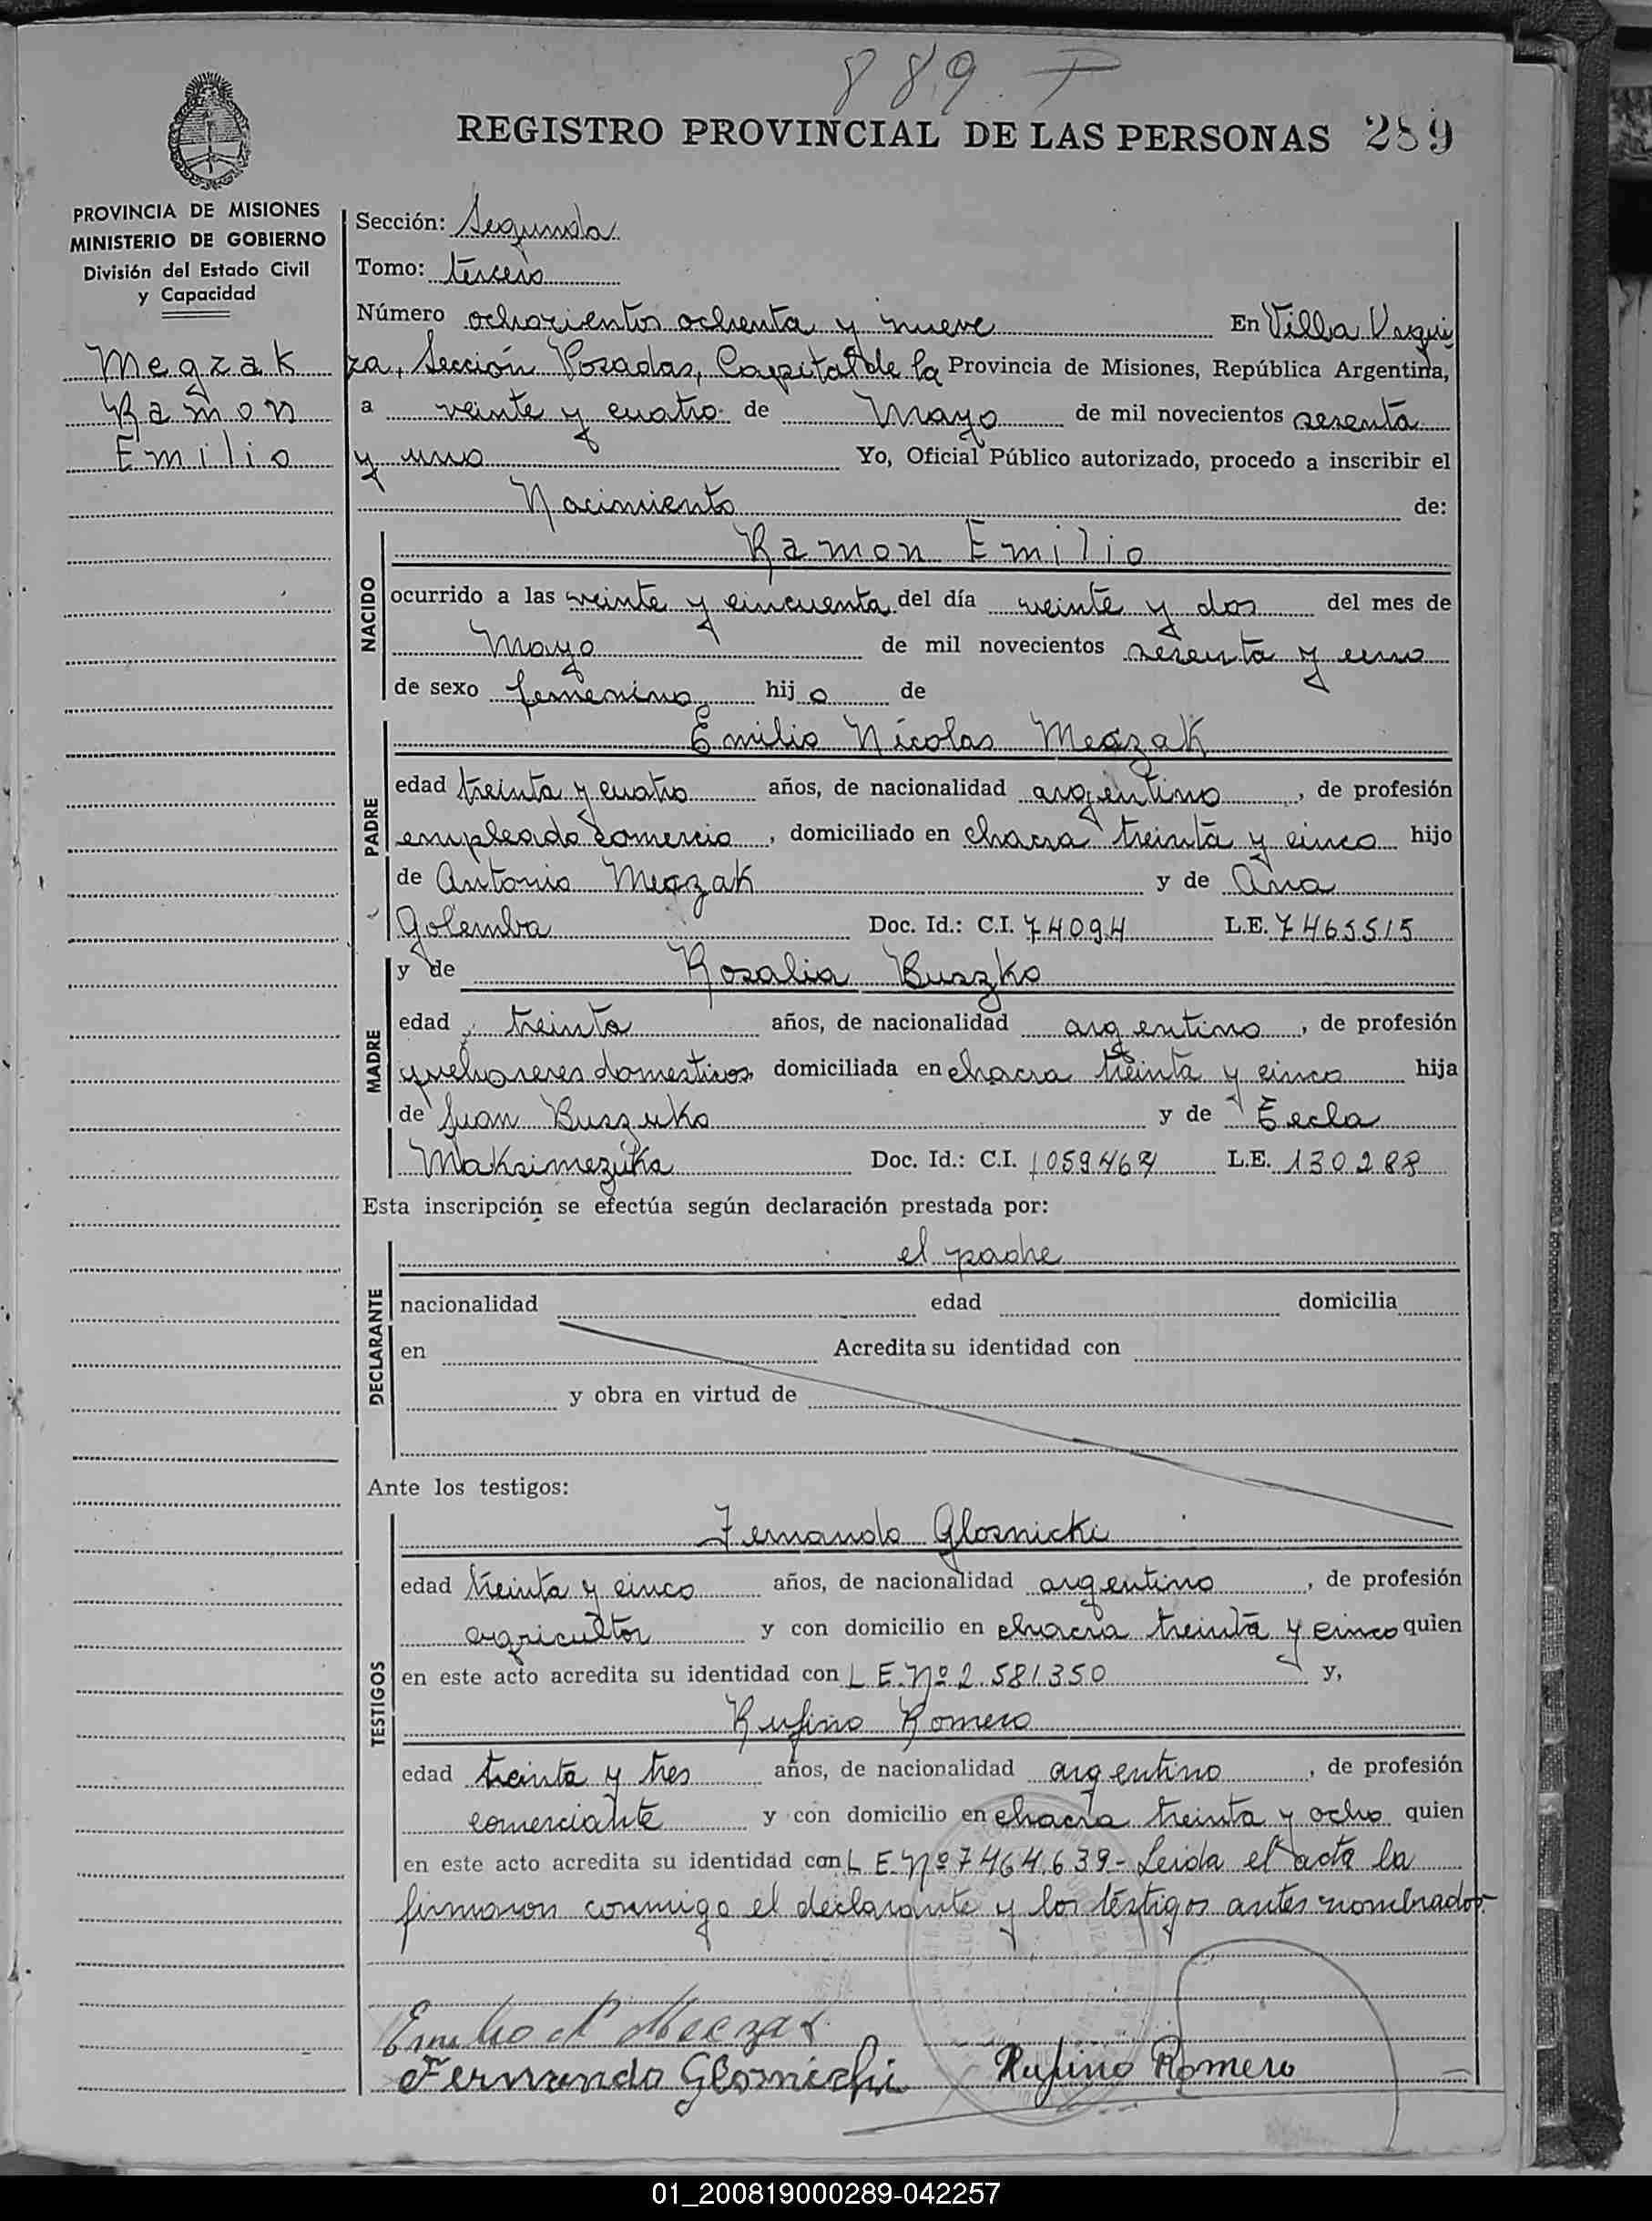 889. P
REGISTRO PROVINCIAL DE LAS PERSONAS 289
PROVINCIA DE MISIONES
MINISTERIO DE GOBIERNO
División del Estado Civil
y Capacidad
Megzak
Ramon
Emilio
Sección: Segunda
Tomo: tercero
Número ochocientos ochenta y nueve En Villa Urqui
za, Sección Posadas, Capital de la Provincia de Misiones, República Argentina,
a veinte y cuatro de Mayo de mil novecientos sesenta
y uno Yo, Oficial Público autorizado, procedo a inscribir el
Nacimiento de:
NACIDO
Ramon Emilio
ocurrido a las veinte y cincuenta del día veinte y dos del mes de
Mayo de mil novecientos sesenta y uno
de sexo femenino hijo de
PADRE
Emilio Nicolas Megzak
edad treinta y cuatro años, de nacionalidad argentino, de profesión
empleado comercio, domiciliado en chacra treinta y cinco hijo
de Antonio Megzak y de Ana
Golemba Doc. Id.: C.I. 74094 L.E. 7465515
MADRE
y de Rosalia Buszko
edad treinta años, de nacionalidad argentino, de profesión
quehoseres domesticos domiciliada en chacra treinta y cinco hija
de Juan Buszuko y de Tecla
Maksimezuka Doc. Id.: C.I. 1059467 L.E. 130288
Esta inscripción se efectúa según declaración prestada por:
DECLARANTE
el padre
nacionalidad edad domicilia
en Acredita su identidad con
y obra en virtud de
Ante los testigos:
TESTIGOS
Fernando Glosnicki
edad treinta y cinco años, de nacionalidad argentino, de profesión
agricultor y con domicilio en chacra treinta y cinco quien
en este acto acredita su identidad con L E. Nº 2.581.350 y,
Rufino Romero
edad treinta y tres años, de nacionalidad argentino, de profesión
comerciante y con domicilio en chacra treinta y ocho quien
en este acto acredita su identidad con L E. Nº 7464.639 - Leida el acta la
firmaron conmigo el declarante y los testigos antes nombrados.
Emilio N Megzak
Fernando Glosnicki Rufino Romero
01_200819000289-042257